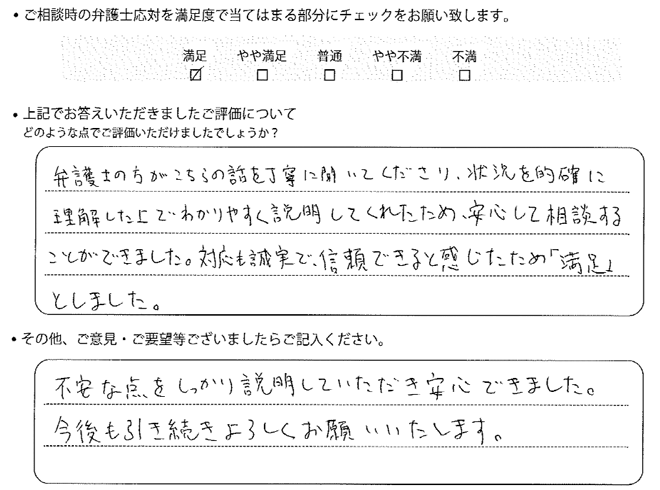 • ご相談時の弁護士応対を満足度で当てはまる部分にチェックをお願い致します。
満足 やや満足 普通 やや不満 不満
☑ □ □ □ □
• 上記でお答えいただきましたご評価について
どのような点でご評価いただけましたでしょうか？
弁護士の方がこちらの話を丁寧に聞いてくださり、状況を的確に
理解した上でわかりやすく説明してくれたため、安心して相談する
ことができました。対応も誠実で、信頼できると感じたため「満足」
としました。
• その他、ご意見・ご要望等ございましたらご記入ください。
不安な点をしっかり説明していただき安心できました。
今後も引き続きよろしくお願いいたします。